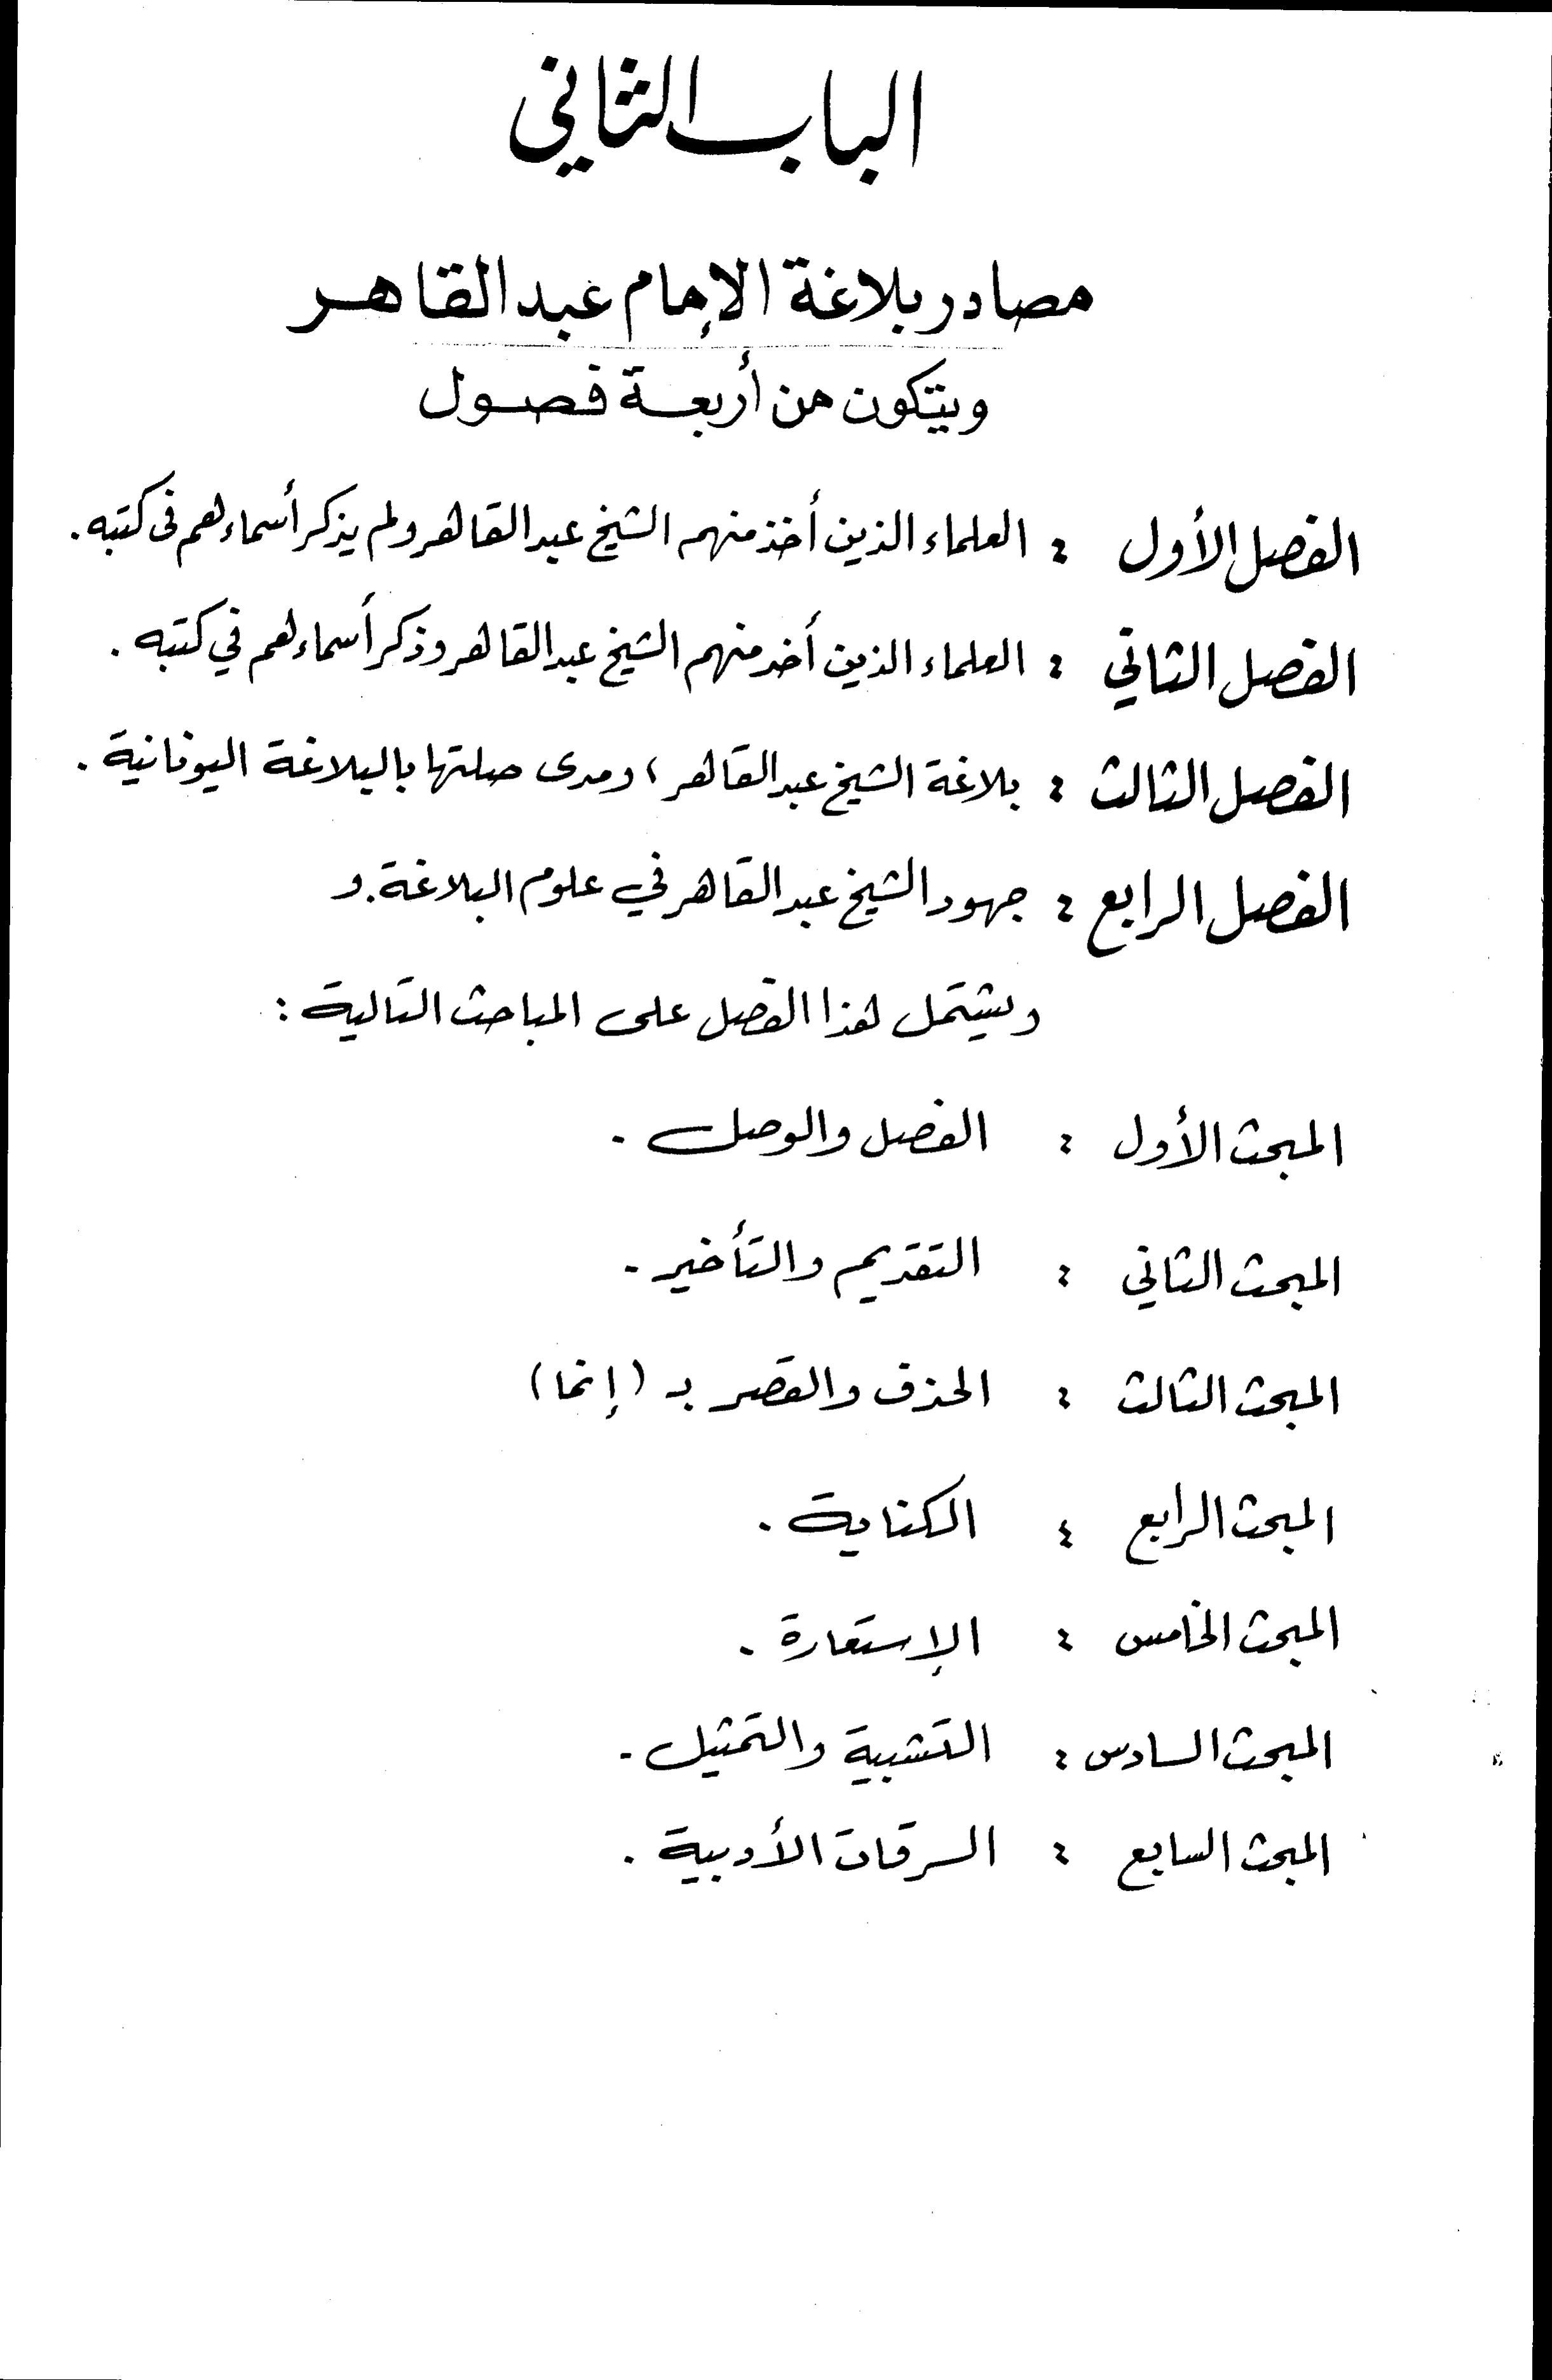 الباب الثاني
مصادر بلاغة الإمام عبد القاهر
ويتكون من أربعة فصول
الفصل الأول : العلماء الذين أخذ منهم الشيخ عبد القاهر ولم يذكر أسماءهم فى كتبه .
الفصل الثاني : العلماء الذين أخذ منهم الشيخ عبد القاهر وذكر أسماءهم في كتبه .
الفصل الثالث : بلاغة الشيخ عبد القاهر ، ومدى صلتها بالبلاغة اليونانية .
الفصل الرابع : جهود الشيخ عبد القاهر في علوم البلاغة . و
ويشتمل هذا الفصل على المباحث التالية :
المبحث الأول : الفصل والوصل .
المبحث الثاني : التقديم والتأخير .
المبحث الثالث : الحذف والقصر بـ (إنما)
المبحث الرابع : الكناية .
المبحث الخامس : الإستعارة .
المبحث السادس : التشبية والتمثيل .
المبحث السابع : السرقات الأدبية .